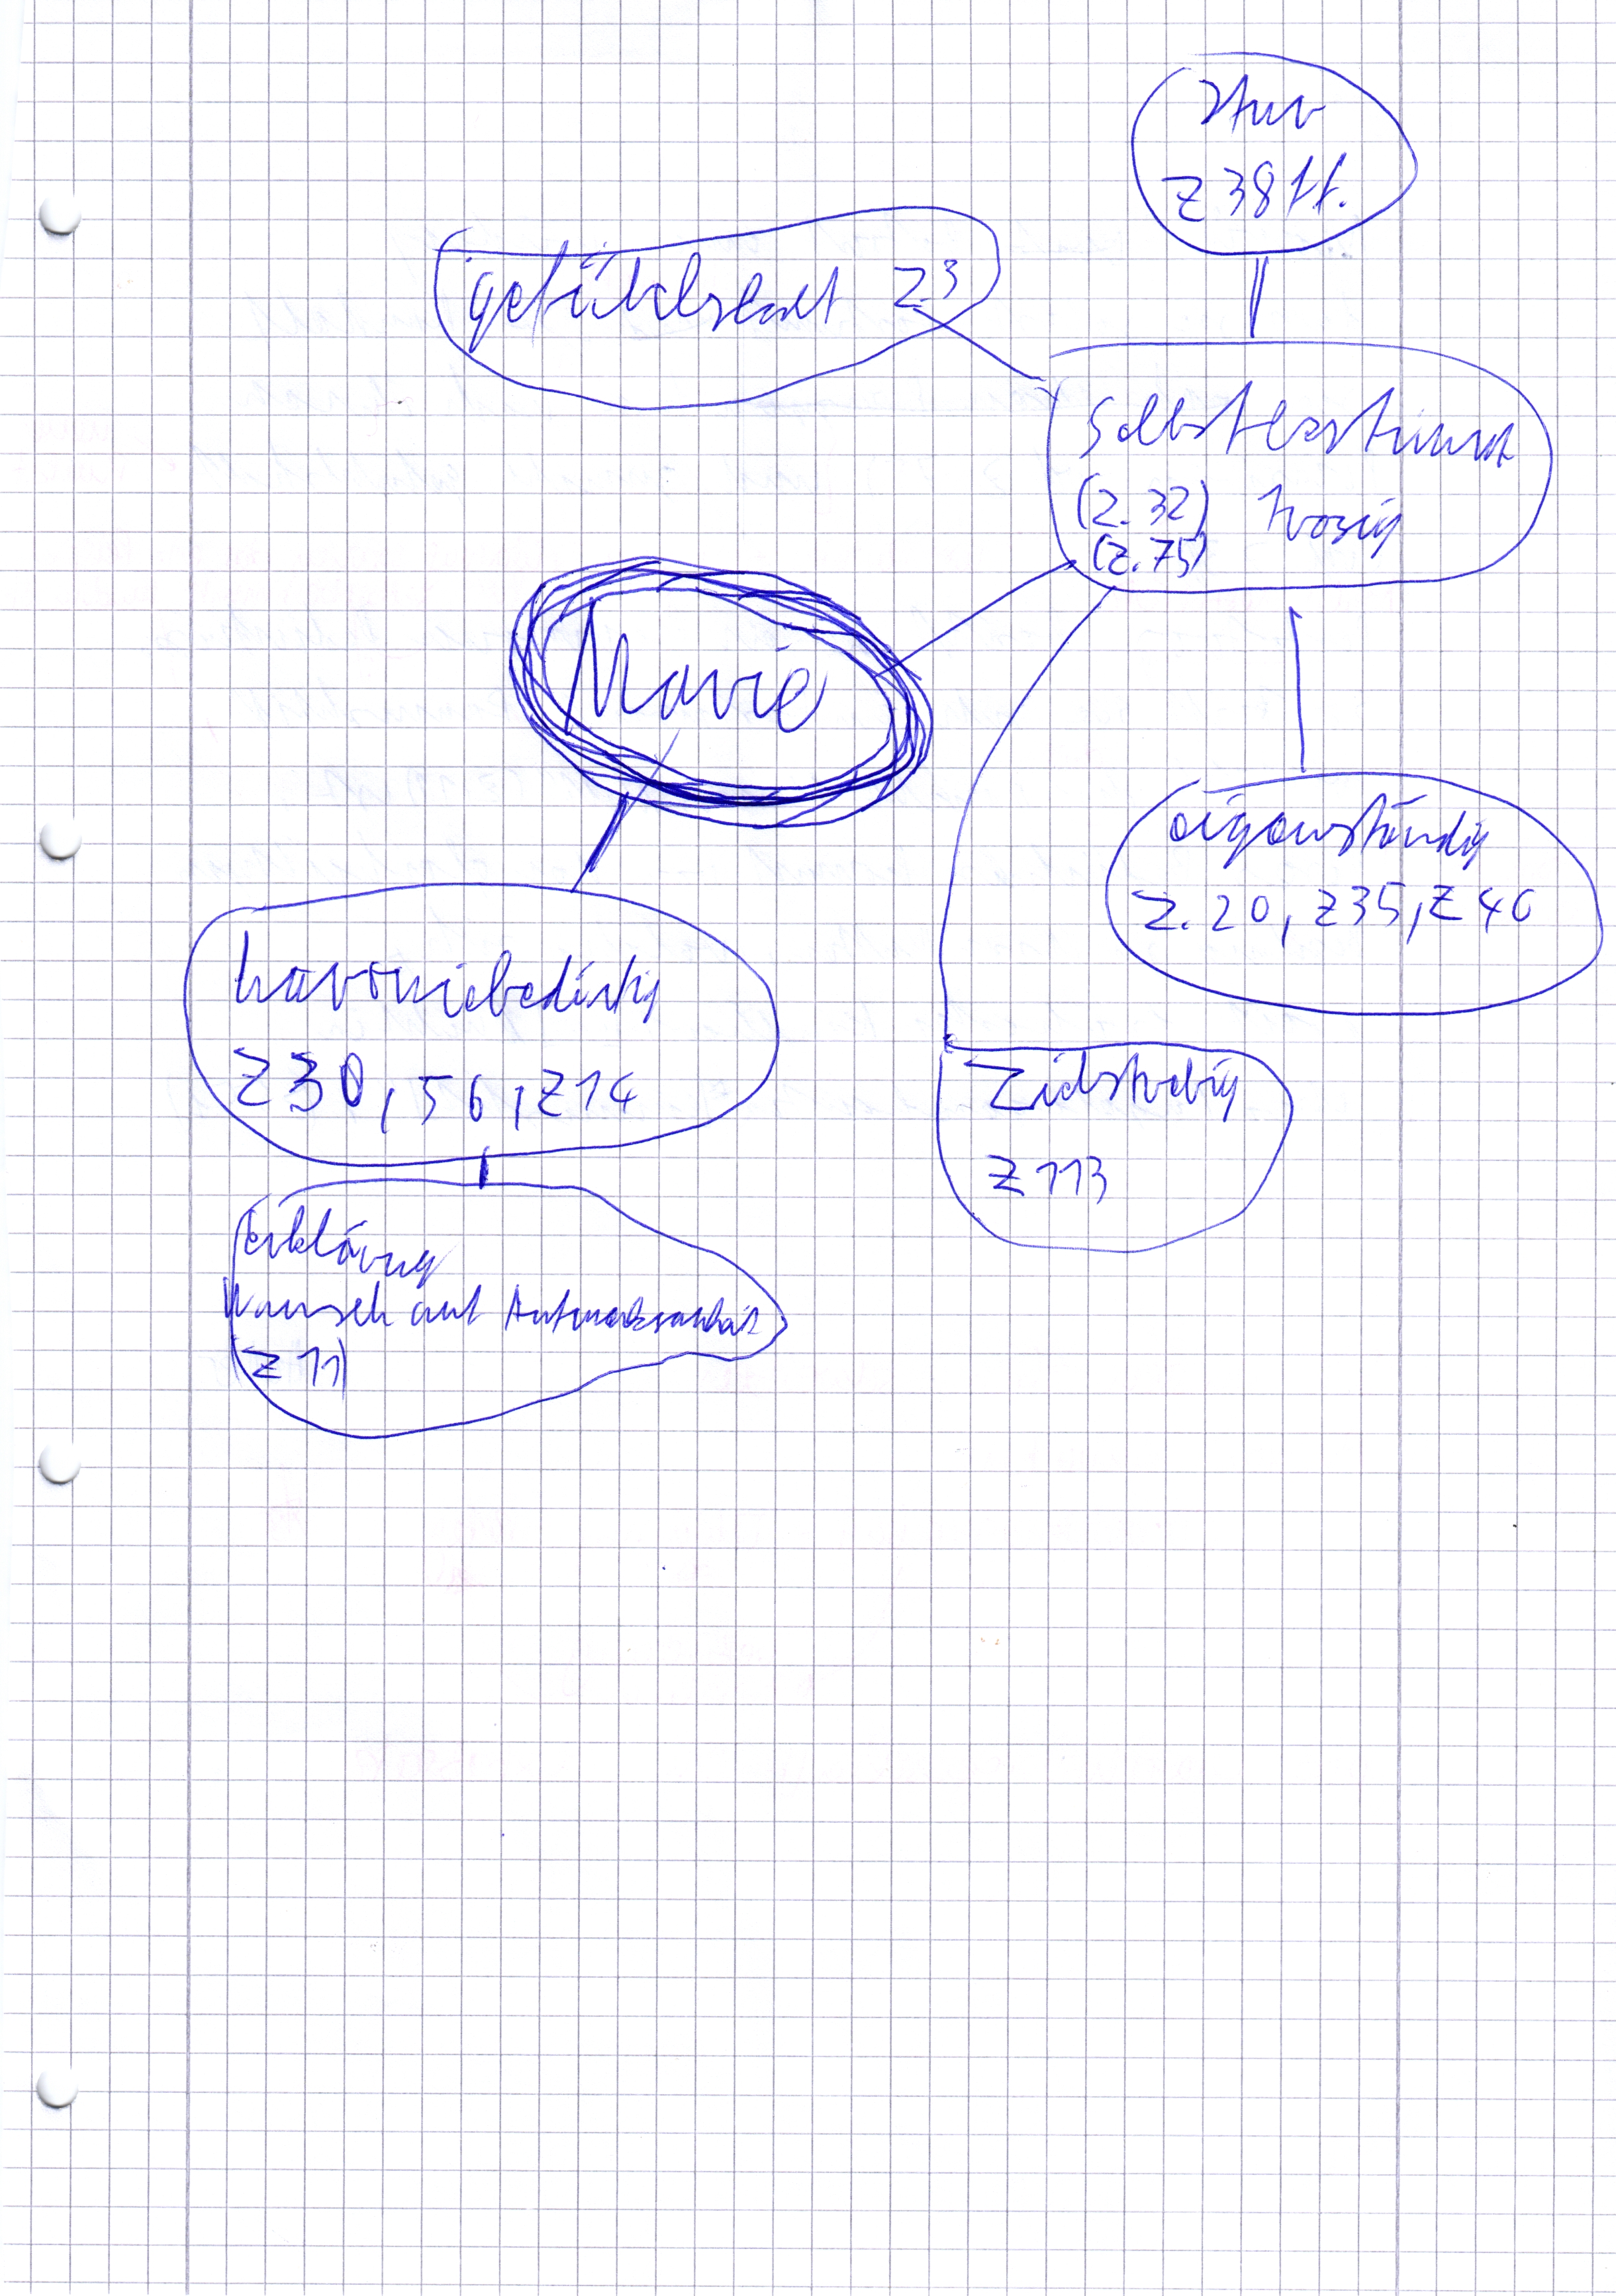 stur
Z 38 ff.
gefühlskalt Z 3
selbstbestimmt
(Z. 32) trozig
(Z. 75)
Marie
eigenständig
Z. 20, Z35, Z40
harmoniebedürftig
Z30, 56, Z14
Zielstrebig
Z 113
Erklärung
Wunsch auf Aufmerksamkeit
(Z 11)